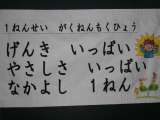 1ねんせい がくねんもくひょう
げんき いっぱい
やさしさ いっぱい
なかよし 1ねん